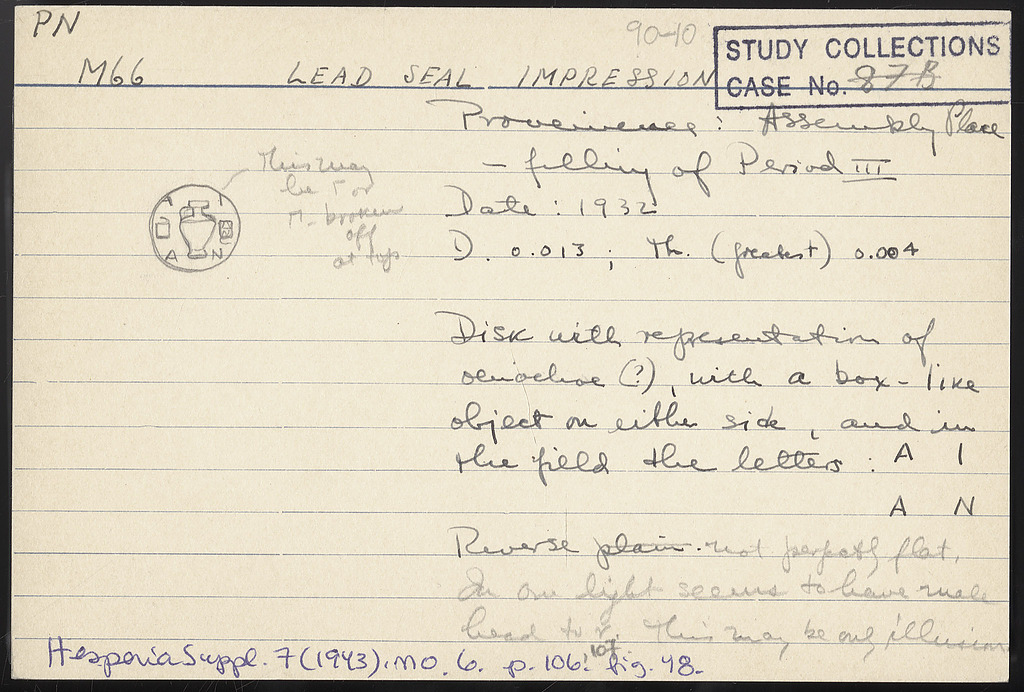 PN
90-10
STUDY COLLECTIONS
CASE No. 87B
M66 LEAD SEAL IMPRESSION
Provenience: Assembly Place
- filling of Period III
Date: 1932
D. 0.013; Th. (greatest) 0.004
This may
be T or
M - broken
off
at top
A I
A N
Disk with representation of
oenochoe (?), with a box-like
object on either side, and in
the field the letters: A I
A N
Reverse plain. not perfectly flat.
In one light seems to have male
head to r. This may be only illusion
Hesperia Suppl. 7 (1943), no. 6. p. 106, 107 fig. 48.